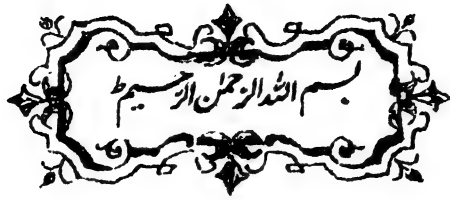 بسم اللہ الرحمٰن الرحیم ط